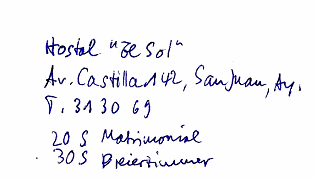 Hostal "De Sol"
Av. Castilla 142, San Juan, Ay.
T. 313069
20 S Matrimonial
30 S Dreierzimmer